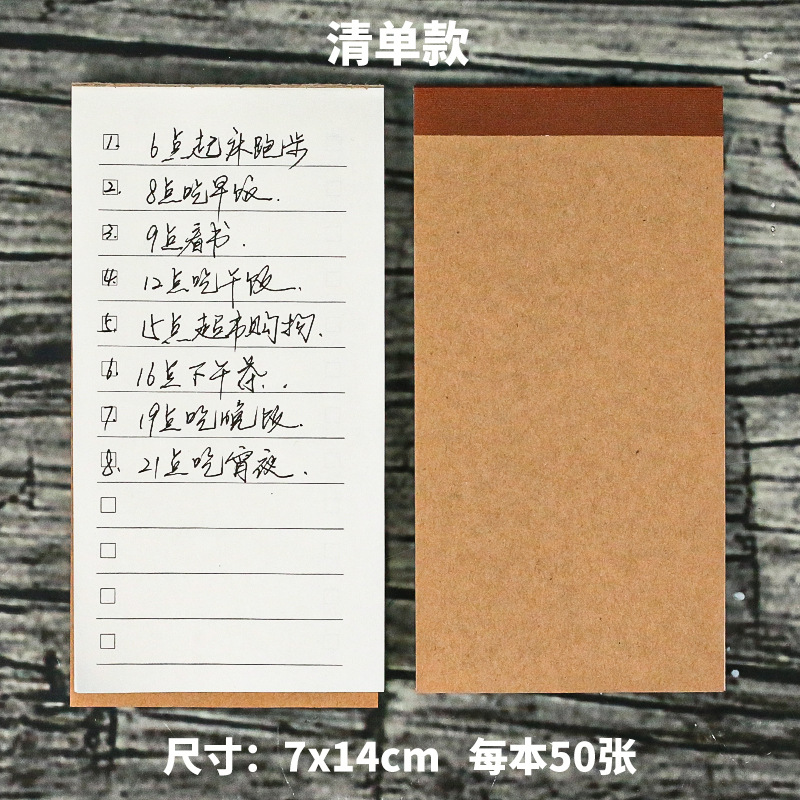 清单款
1. 6点起床跑步
2. 8点吃早饭.
3. 9点看书.
4. 12点吃午饭.
5. 15点超市购物.
6. 16点下午茶..
7. 19点吃晚饭.
8. 21点吃宵夜.
尺寸：7x14cm 每本50张